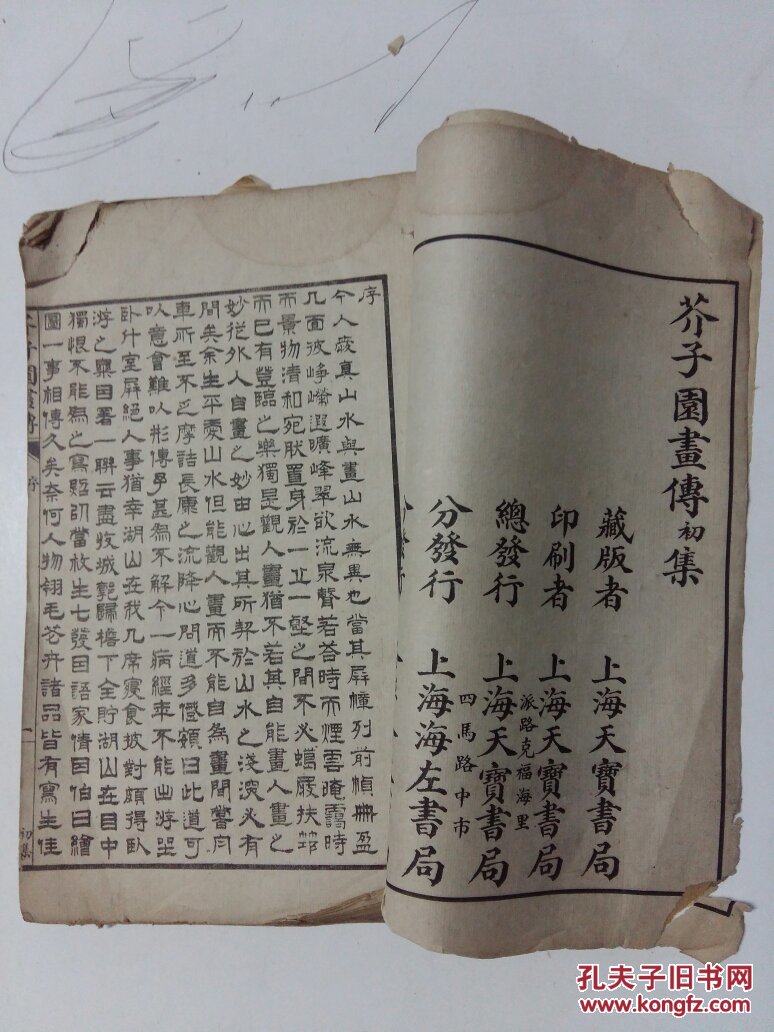 芥子園畫傳初集
藏版者 上海天寶書局
印刷者 上海天寶書局
派路克福海里
總發行 上海天寶書局
四馬路中市
分發行 上海海左書局
序
今人愛真山水與畫山水無異也當其屏幛列前幀冊盈
几面彼崢嶸遐曠峰翠欲流泉聲若答時而煙雲晻靄時
而景物清和宛肰置身於一丘一壑之間不必蠟屐扶筇
而已有登臨之樂獨是觀人畫猶不若其自能畫人畫之
妙從外人自畫之妙由心出其所契於山水之淺深必有
間矣余生平愛山水但能觀人畫而不能自為畫間嘗
車所至不乏摩詰長康之流降心問道多蹙額曰此道可
以意會難以形傳予甚為不解今一病經年不能出游坐
臥什室屏絕人事猶幸湖山在我几席寢食披對頗得臥
游之樂因署一聯云盡收城郭歸檐下全貯湖山在目中
獨恨不能為之寫照卧當枚生七發因語家倩因伯曰繪
圖一事相傳久矣奈何人物翎毛花卉諸品皆有寫生佳
芥子園畫傳
序
一
初集
孔夫子旧书网
www.kongfz.com